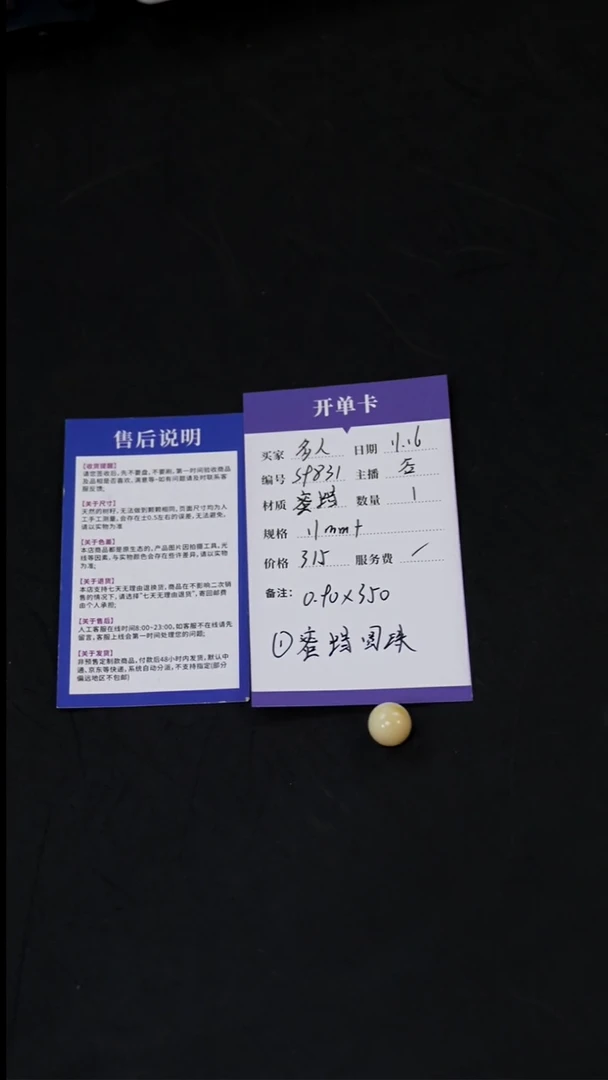 售后说明
【收货提醒】
请您签收后,先不要盘,不要刷,第一时间验收商品
及品相是否喜欢,满意等~如有问题请及时联系客
服反馈;
【关于尺寸】
天然的树籽,无法做到颗颗相同,页面尺寸均为人
工手工测量,会存在±0.5左右的误差,无法避免,
请以实物为准
【关于色差】
本店商品都是原生态的,产品图片因拍摄工具,光
线等因素,与实物颜色会存在些许差异,请以实物
为准;
【关于退货】
本店支持七天无理由退换货,商品在不影响二次销
售的情况下,请选择"七天无理由退货",寄回邮费
由个人承担;
【关于售后】
人工客服在线时间8:00-23:00,如客服不在线请先
留言,客服上线会第一时间处理您的问题;
【关于发货】
非预售定制款商品,付款后48小时内发货,默认中
通、京东等快递,系统自动分派,不支持指定(部分
偏远地区不包邮)
开单卡
买家 多人 日期 11.16
编号 SP831 主播
材质 蜜蜡 数量 1
规格 11mm+
价格 315 服务费 /
备注: 0.90×350
①蜜蜡圆珠